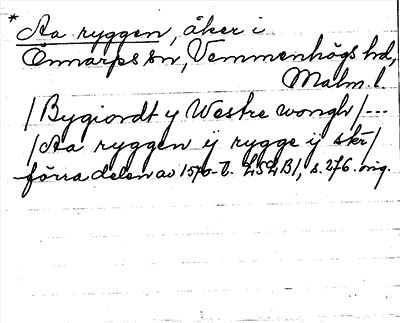 * Aa ryggen, åker i
Önnarps sn, Vemmenhögs hd,
Malm. l.
/Bygiordt y Westre wongh/---
/Aa ryggen ij rygge ij skr/
förra delen av 1570-t. LSLB/, s. 276. orig.